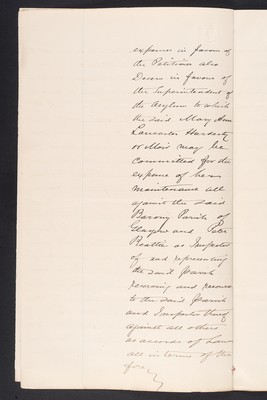 expenses in favour of
the Petitioner also
Decern in favour of
the Superintendent of
the Asylum to which
the said Mary Ann
Lancaster
or Moir may be
committed for the
expense of her
maintenance all
against the said
Barony Parish of
Glasgow and Peter
Beattie as Inspector
of and representing
the said Parish
reserving and
to the said Parish
and Inspector thereof
against all others
as accords of Law
all in terms of the